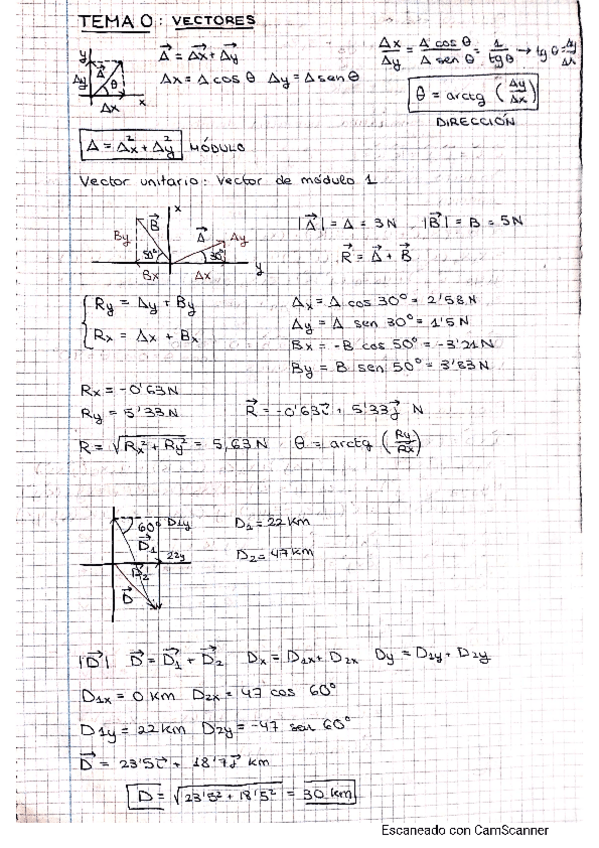 TEMA 0: VECTORES
y A Ay θ Δx x
A⃗ = A⃗x + A⃗y
Ax = A cos θ Ay = A sen θ
Ax/Ay = A cos θ / A sen θ = 1/tg θ → tg θ = Ay/Ax
θ = arctg (Ay/Ax)
DIRECCIÓN
A = A²x + A²y MÓDULO
Vector unitario: Vector de módulo 1
x By B⃗ A⃗ Ay 50º 30º Bx Ax y
|A⃗| = A = 3N |B⃗| = B = 5N
R⃗ = A⃗ + B⃗
Ry = Ay + By
Rx = Ax + Bx
Ax = A cos 30º = 2'58N
Ay = A sen 30º = 1'5N
Bx = -B cos 50º = -3'21N
By = B sen 50º = 3'83N
Rx = -0'63N
Ry = 5'33N R⃗ = -0'63i⃗ + 5'33j⃗ N
R = √Rx² + Ry² = 5,63N θ = arctg (Ry/Rx)
60º D1y D⃗1 22y D⃗2 D⃗
D1 = 22 km
D2 = 47 km
|D⃗| D⃗ = D⃗1 + D⃗2 Dx = D1x + D2x Dy = D1y + D2y
D1x = 0 km D2x = 47 cos 60º
D1y = 22 km D2y = -47 sen 60º
D⃗ = 23'5i⃗ + 18'7j⃗ km
D = √23'5² + 18'5² = 30 km
Escaneado con CamScanner